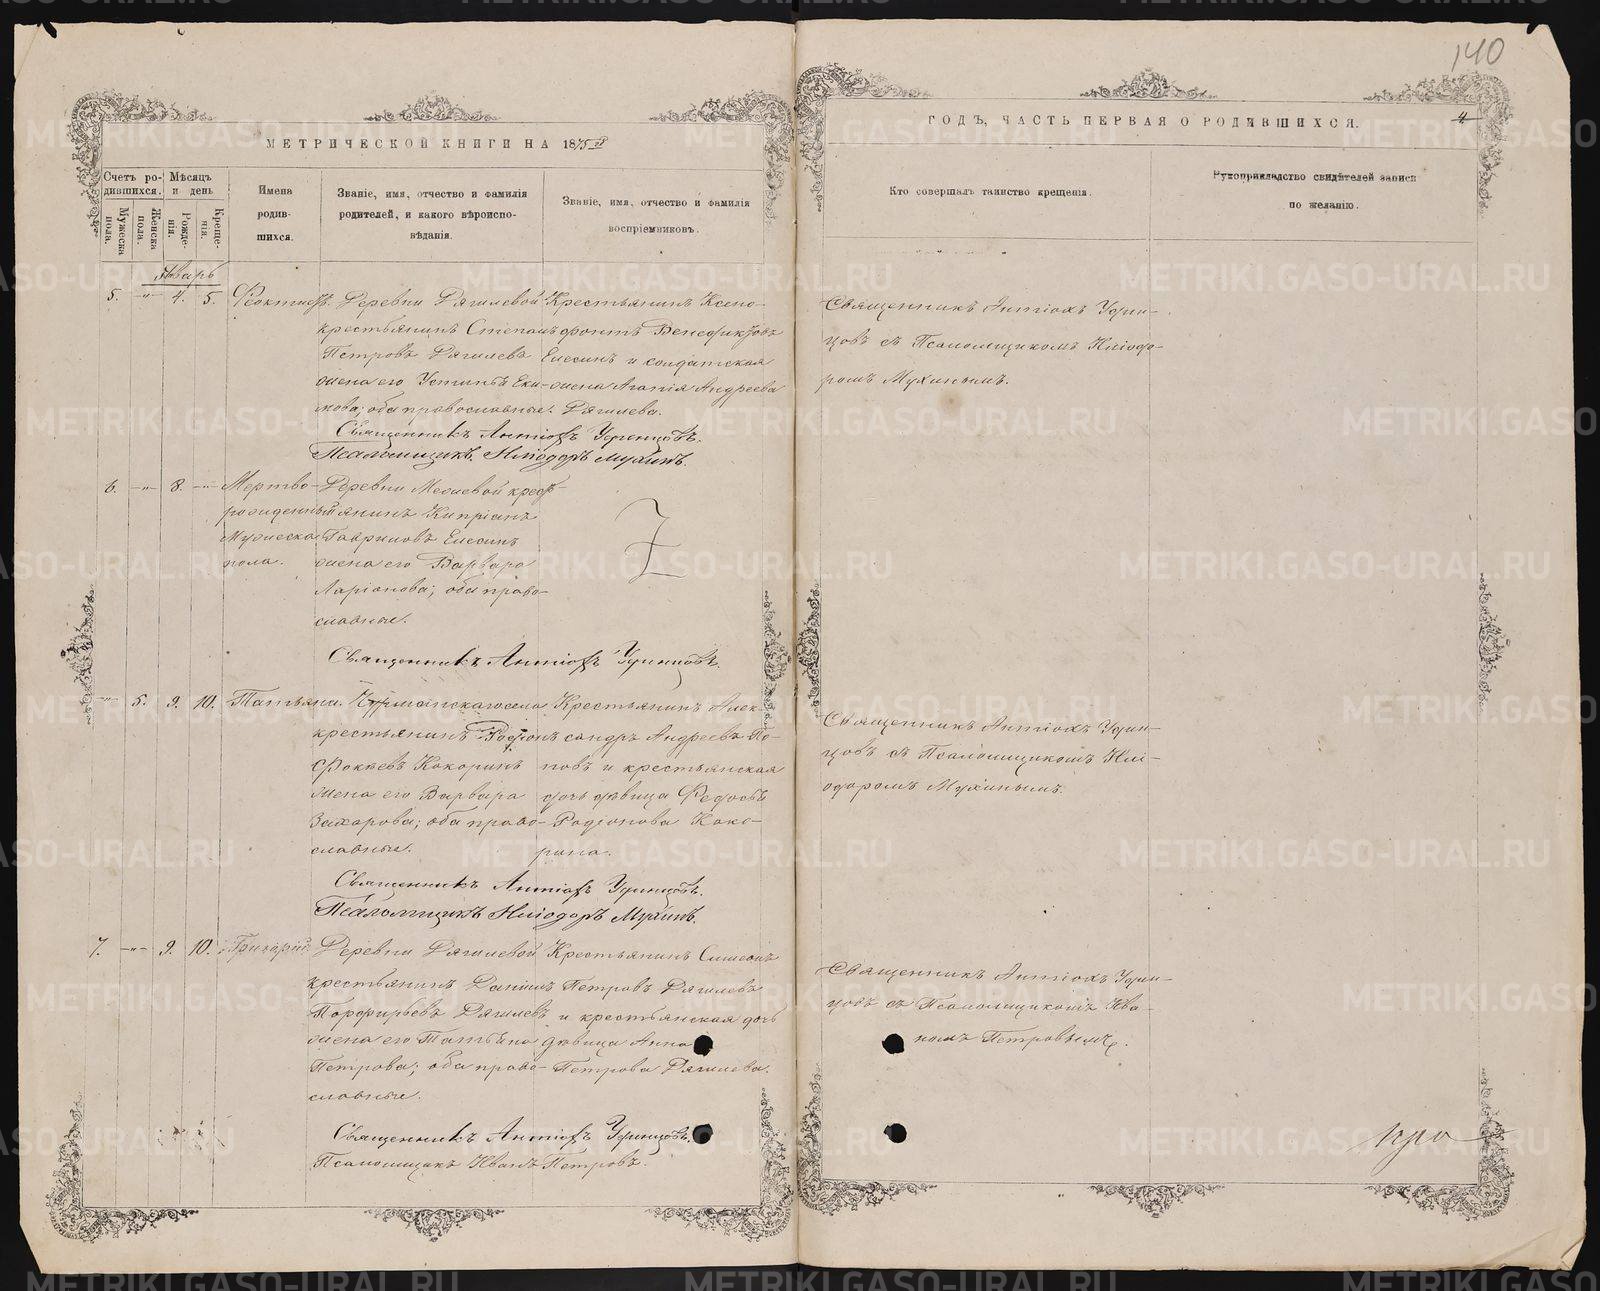 140
МЕТРИЧЕСКОЙ КНИГИ НА 1875й
ГОДЪ, ЧАСТЬ ПЕРВАЯ О РОДИВШИХСЯ.
4
Счетъ ро-
дившихся.
Мужеска
пола.
Женска
пола.
Мѣсяцъ
и день
Рожде-
нія.
Креще-
нія.
Имена
родив-
шихся.
Званіе, имя, отчество и фамилія
родителей, и какого вѣроиспо-
вѣданія.
Званіе, имя, отчество и фамилія
воспріемниковъ.
Кто совершалъ таинство крещенія.
Рукоприкладство свидѣтелей записи
по желанію.
Январь
5. -"- 4. 5.
Деревни Рягилевой
крестьянинъ Степанъ
Петровъ Рягилевъ
жена его Устинья Еки-
мова; оба православные.
Крестьянинъ Ксено-
фонтъ Венедиктовъ
Елесинъ и солдатская
жена Агапія Андреева
Рягилева.
Священникъ Антіохъ Удинцовъ.
Псаломщикъ Иліодоръ Мухинъ.
Священникъ Антіохъ Удин-
цовъ съ Псаломщикомъ Иліодо-
ромъ Мухинымъ.
6. -"- 8. -"-
Мертво-
рожденный
Мужеска
пола.
Деревни крес-
тьянинъ Кипріанъ
Гавриловъ Елесинъ
жена его Варвара
Ларіонова; оба право-
славные.
Священникъ Антіохъ Удинцовъ.
-"- 5. 9. 10.
Татьяна.
села
крестьянинъ Родіонъ
Фокѣевъ Кокоринъ
жена его Варвара
Захарова; оба право-
славные.
Крестьянинъ Алек-
сандръ Андреевъ По-
повъ и крестьянская
дочь дѣвица Федосья
Родіонова Коко-
рина.
Священникъ Антіохъ Удинцовъ.
Псаломщикъ Иліодоръ Мухинъ.
Священникъ Антіохъ Удин-
цовъ съ Псаломщикомъ Илі-
одоромъ Мухинымъ.
7. -"- 9. 10.
Григорій.
Деревни Рягилевой
крестьянинъ Даніилъ
Порфирьевъ Рягилевъ
жена его Татьяна
Петрова; оба право-
славные.
Крестьянинъ Симеонъ
Петровъ Рягилевъ
и крестьянская дочь
дѣвица Анна
Петрова Рягилева.
Священникъ Антіохъ Удинцовъ.
Псаломщикъ Иванъ Петровъ.
Священникъ Антіохъ Удин-
цовъ съ Псаломщикомъ Ива-
номъ Петровымъ.
METRIKI.GASO-URAL.RU